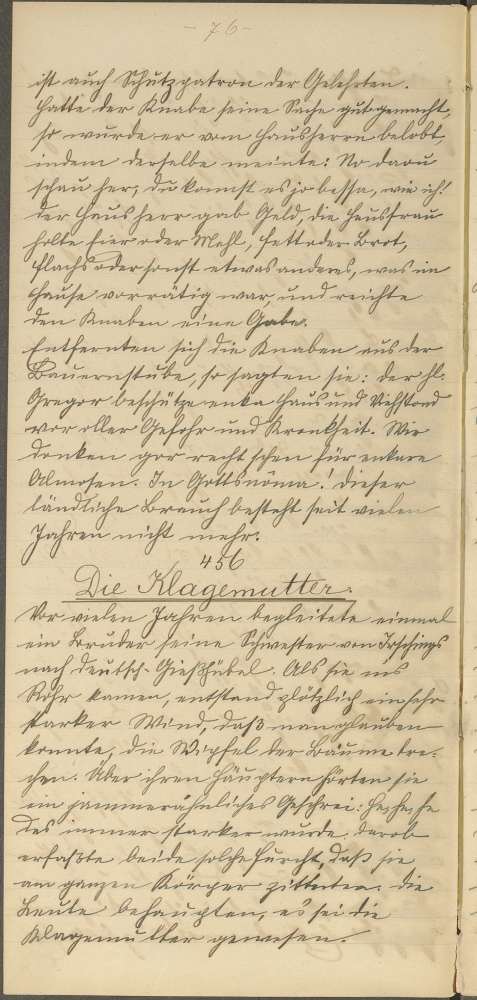 - 76 -
ist auch Schutzpatron der Gelehrten.
Hatte der Knabe seine Sache gut gemacht,
so wurde er vom Hausherrn belobt,
indem derselbe meinte: No darou
schau her, du konnst es jo bessa, wie ich!
Der Hausherr gab Geld, die Hausfrau
holte Eier oder Mehl, Fett oder Brot,
Flachs oder sonst etwas anderes, was im
Hause vorrätig war, und reichte
den Knaben eine Gabe.
Entfernten sich die Knaben aus der
Bauernstube, so sagten sie: Der hl.
Gregor beschütze enka Haus und Vichstond
vor oller Gefohr und Kronkheit. Wir
donken gor recht schen für enkare
Almosen. In Gottsnoma! Dieser
ländliche Brauch besteht seit vielen
Jahren nicht mehr.
456
Die Klagemutter.
Vor vielen Jahren begleitete einmal
ein Bruder seine Schwester von
nach Deutsch-Gießhübel. Als sie ins
Rohr kamen, entstand plötzlich ein sehr
starker Wind, daß man glauben
konnte, die Wipfel der Bäume bre-
chen. Über ihren Häuptern hörten sie
ein jammerähnliches Geschrei: He, he, he
das immer starker wurde. Darob
erfaßte beide solche Furcht, daß sie
am ganzen Körper zitterten. Die
Leute behaupten, es sei die
Klagemutter gewesen.